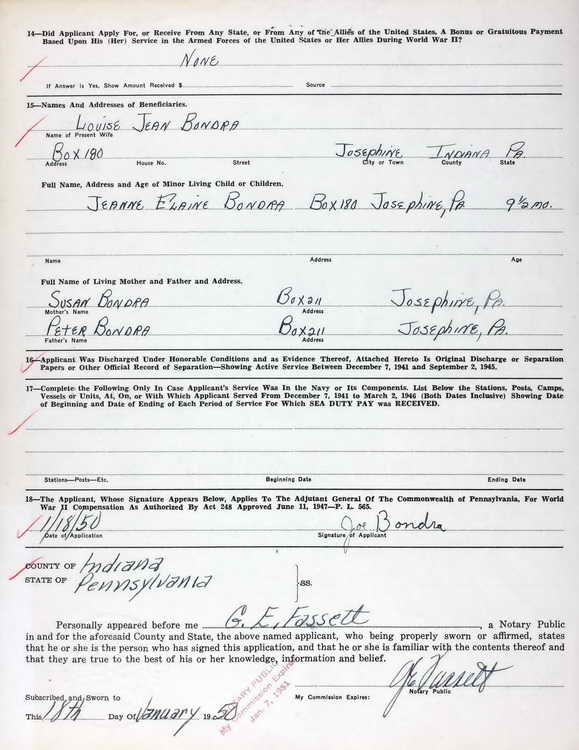 14—Did Applicant Apply For, or Receive From Any State, or From Any of the Allies of the United States, A Bonus or Gratuitous Payment
Based Upon His (Her) Service in the Armed Forces of the United States or Her Allies During World War II?
NONE
If Answer is Yes, Show Amount Received $ Source
15—Names And Addresses of Beneficiaries.
LOUISE JEAN BONDRA
Name of Present Wife
BOX 180 JOSEPHINE INDIANA PA
Address House No. Street City or Town County State
Full Name, Address and Age of Minor Living Child or Children.
JEANNE ELAINE BONDRA BOX 180 JOSEPHINE, PA 9½ MO.
Name Address Age
Full Name of Living Mother and Father and Address.
SUSAN BONDRA BOX 211 JOSEPHINE, PA.
Mother's Name Address
PETER BONDRA BOX 211 JOSEPHINE, PA.
Father's Name Address
16—Applicant Was Discharged Under Honorable Conditions and as Evidence Thereof, Attached Hereto Is Original Discharge or Separation
Papers or Other Official Record of Separation—Showing Active Service Between December 7, 1941 and September 2, 1945.
17—Complete the Following Only In Case Applicant's Service Was In the Navy or Its Components. List Below the Stations, Posts, Camps,
Vessels or Units, At, On, or With Which Applicant Served From December 7, 1941 to March 2, 1946 (Both Dates Inclusive) Showing Date
of Beginning and Date of Ending of Each Period of Service For Which SEA DUTY PAY was RECEIVED.
Stations—Posts—Etc. Beginning Date Ending Date
18—The Applicant, Whose Signature Appears Below, Applies To The Adjutant General Of The Commonwealth of Pennsylvania, For World
War II Compensation As Authorized By Act 248 Approved June 11, 1947—P. L. 565.
1/18/50 Joe Bondra
Date of Application Signature of Applicant
COUNTY OF Indiana
STATE OF Pennsylvania ss.
Personally appeared before me G. E. Fassett, a Notary Public
in and for the aforesaid County and State, the above named applicant, who being properly sworn or affirmed, states
that he or she is the person who has signed this application, and that he or she is familiar with the contents thereof and
that they are true to the best of his or her knowledge, information and belief.
GE Fassett
Notary Public
Subscribed and Sworn to My Commission Expires:
This 18th Day Of January 1950
NOTARY PUBLIC
My Commission Expires
Jan. 7, 1951